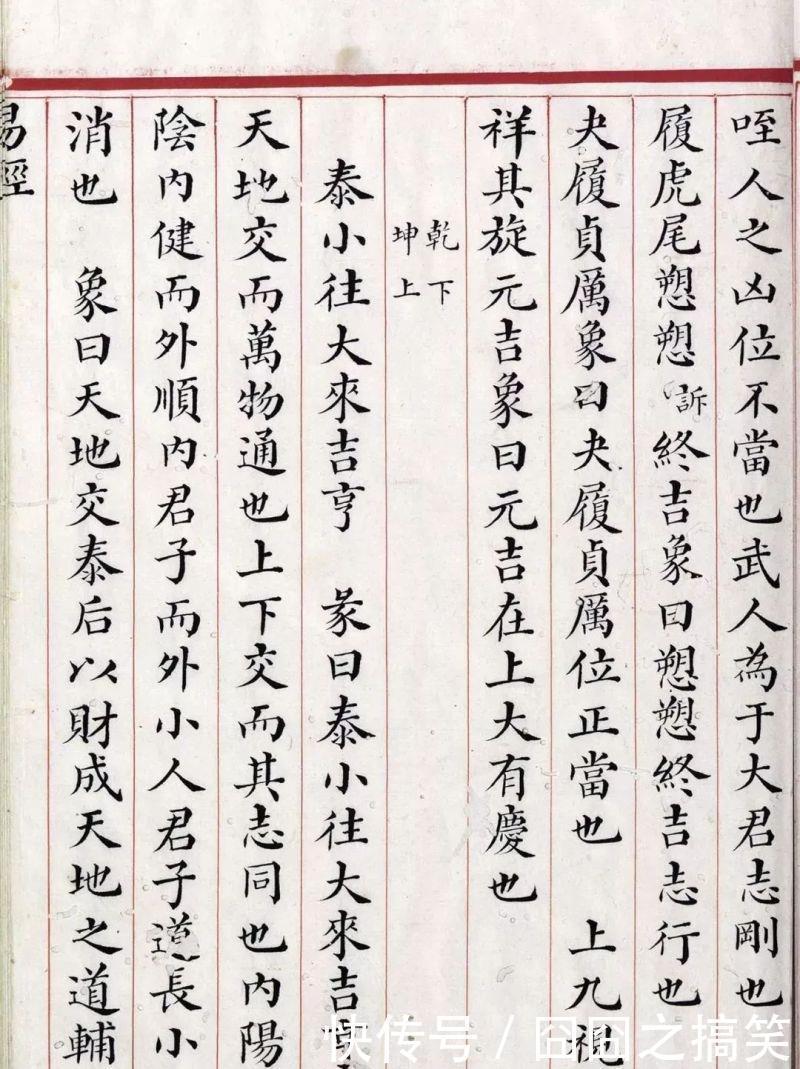 咥人之凶位不當也武人為于大君志剛也
履虎尾愬愬 訴 終吉象曰愬愬終吉志行也
夬履貞厲象曰夬履貞厲位正當也 上九視
祥其旋元吉象曰元吉在上大有慶也
乾下
坤上
泰小往大來吉亨 彖曰泰小往大來吉
天地交而萬物通也上下交而其志同也內陽
陰內健而外順內君子而外小人君子道長小
消也 象曰天地交泰后以財成天地之道輔
易經
快传号 / 囧囧之搞笑